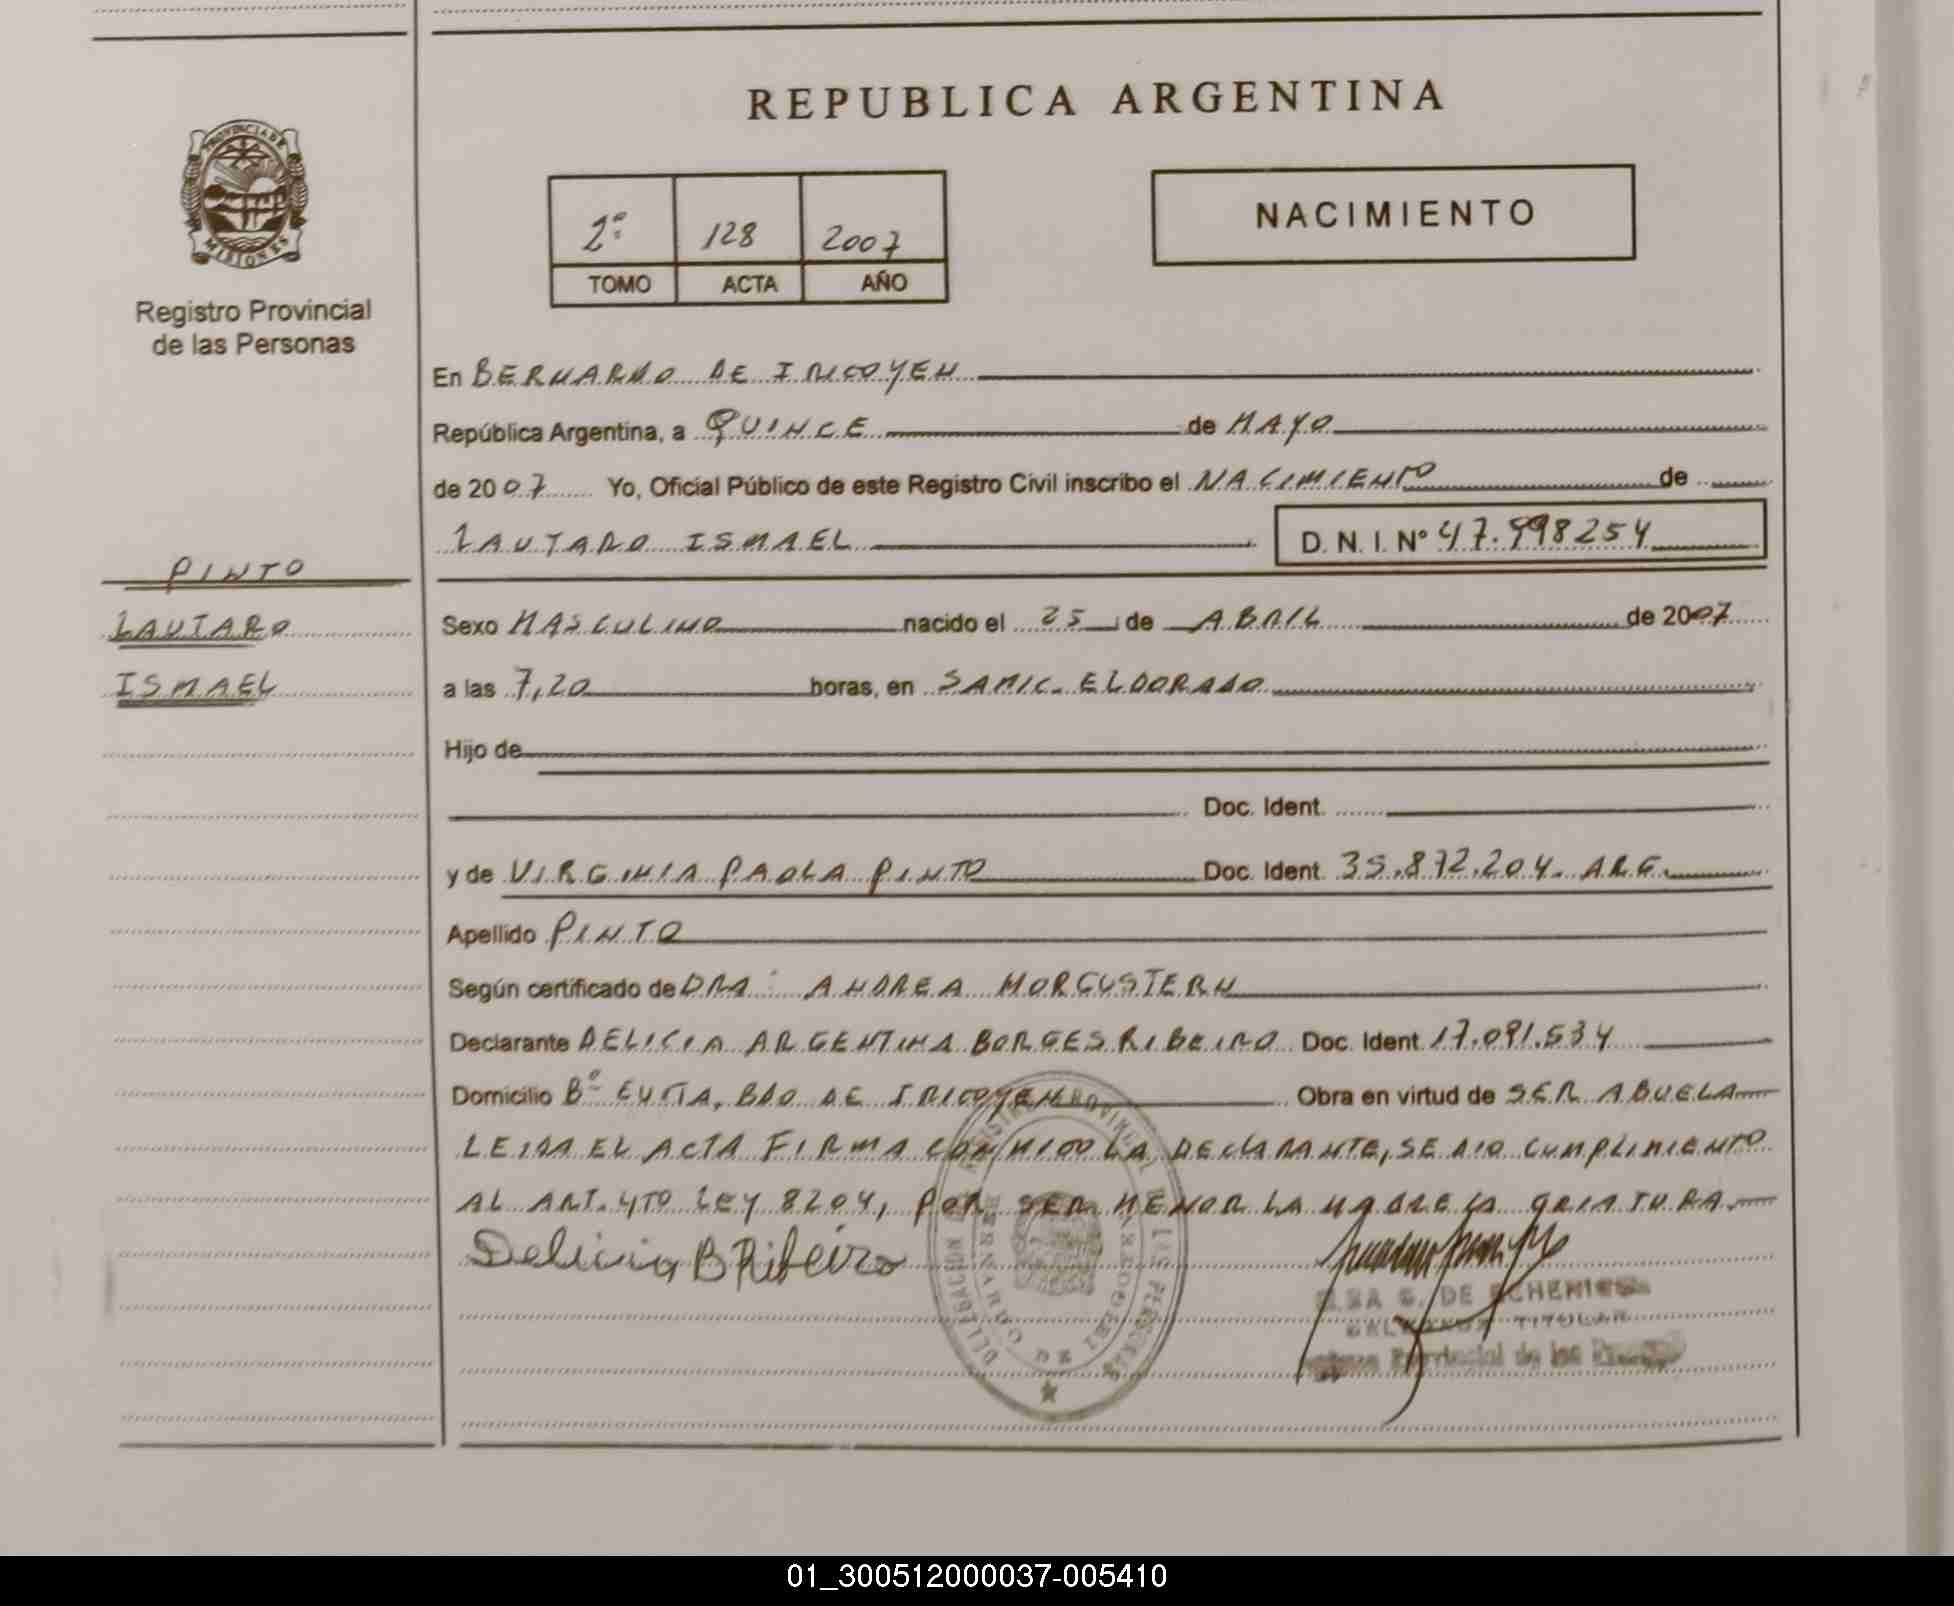 REPUBLICA ARGENTINA
PROVINCIA DE
MISIONES
Registro Provincial
de las Personas
2º 128 2007
TOMO ACTA AÑO
NACIMIENTO
En BERNARDO DE IRIGOYEN
República Argentina, a QUINCE de MAYO
de 2007 Yo, Oficial Público de este Registro Civil inscribo el NACIMIENTO de
LAUTARO ISMAEL D. N. I. Nº 47.998254
PINTO
LAUTARO
ISMAEL
Sexo MASCULINO nacido el 25 de ABRIL de 2007
a las 7,20 horas, en SAMIC. ELDORADO
Hijo de
Doc. Ident.
y de VIRGINIA PAOLA PINTO Doc. Ident. 35.872.204. ARG.
Apellido PINTO
Según certificado de DRA: ANDREA MORGUSTERN
Declarante DELICIA ARGENTINA BORGES RIBEIRO Doc. Ident. 17.091.534
Domicilio Bº EVITA, BDO DE IRIGOYEN Obra en virtud de SER ABUELA
LEIDA EL ACTA FIRMA CONMIGO LA DECLARANTE, SE DIO CUMPLIMIENTO
AL ART. 4TO LEY 8204, POR SER MENOR LA MADRE LA CRIATURA
Delicia B Ribeiro
G. DE ECHENI
TITULAR
Provincial de las
01_300512000037-005410